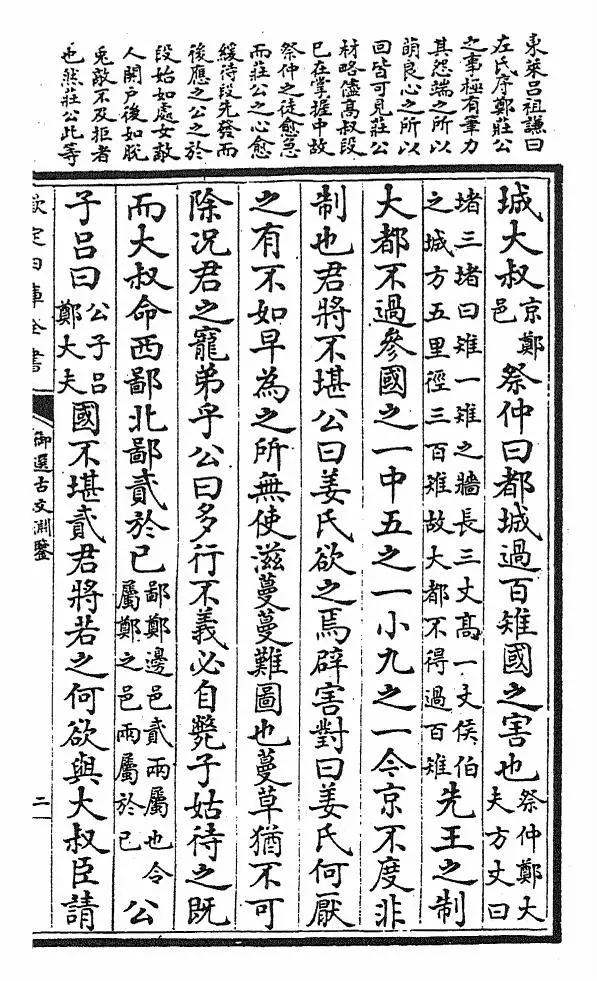 東萊呂祖謙曰
左氏序鄭莊公
之事極有筆力
其怨端之所以
萌良心之所以
回皆可見莊公
材略儘髙叔段
已在掌握中故
祭仲之徒愈急
而莊公之心愈
緩待段先發而
後應之公之於
段始如處女敵
人開户後如脱
兎敵不及拒者
也然莊公此等
城大叔京鄭邑祭仲曰都城過百雉國之害也祭仲鄭大夫方丈曰
堵三堵曰雉一雉之牆長三丈髙一丈侯伯之城方五里徑三百雉故大都不得過百雉先王之制
大都不過參國之一中五之一小九之一今京不度非
制也君將不堪公曰姜氏欲之焉辟害對曰姜氏何厭
之有不如早為之所無使滋蔓蔓難圖也蔓草猶不可
除況君之寵弟乎公曰多行不義必自斃子姑待之既
而大叔命西鄙北鄙貳於己鄙鄭邊邑貳兩屬也令屬鄭之邑兩屬於己公
子呂曰公子呂鄭大夫國不堪貳君將若之何欲與大叔臣請
欽定四庫全書 御選古文淵鑒 二